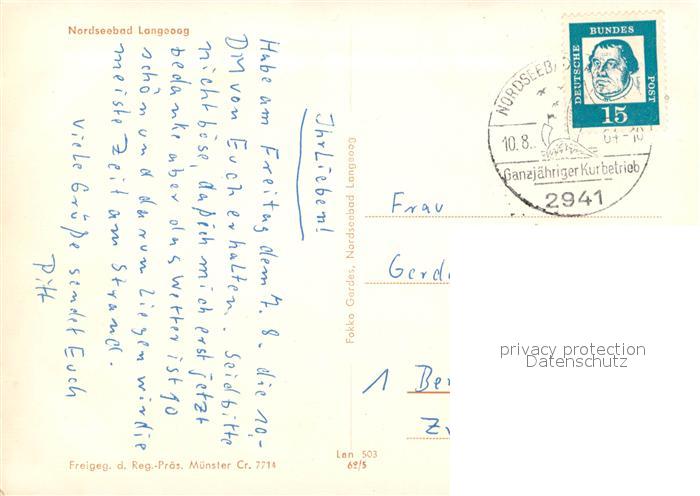 Nordseebad Langeoog
Ihr Lieben!
Habe am Freitag dem 7.8. die 10,-
DM von Euch erhalten. Seid bitte
nicht böse, daß ich mich erst jetzt
bedanke aber das Wetter ist so
schön und darum liegen wir die
meiste Zeit am Strand.
Viele Grüße sendet Euch
Pitt
Freigeg. d. Reg.-Präs. Münster Cr. 7714
Fokko Gerdes, Nordseebad Langeoog
Lan 503
62/5
DEUTSCHE BUNDES POST
15
NORDSEEBAD
10.8.
64-10
Ganzjähriger Kurbetrieb
2941
Frau
Gerda
1 Ber
privacy protection
Datenschutz